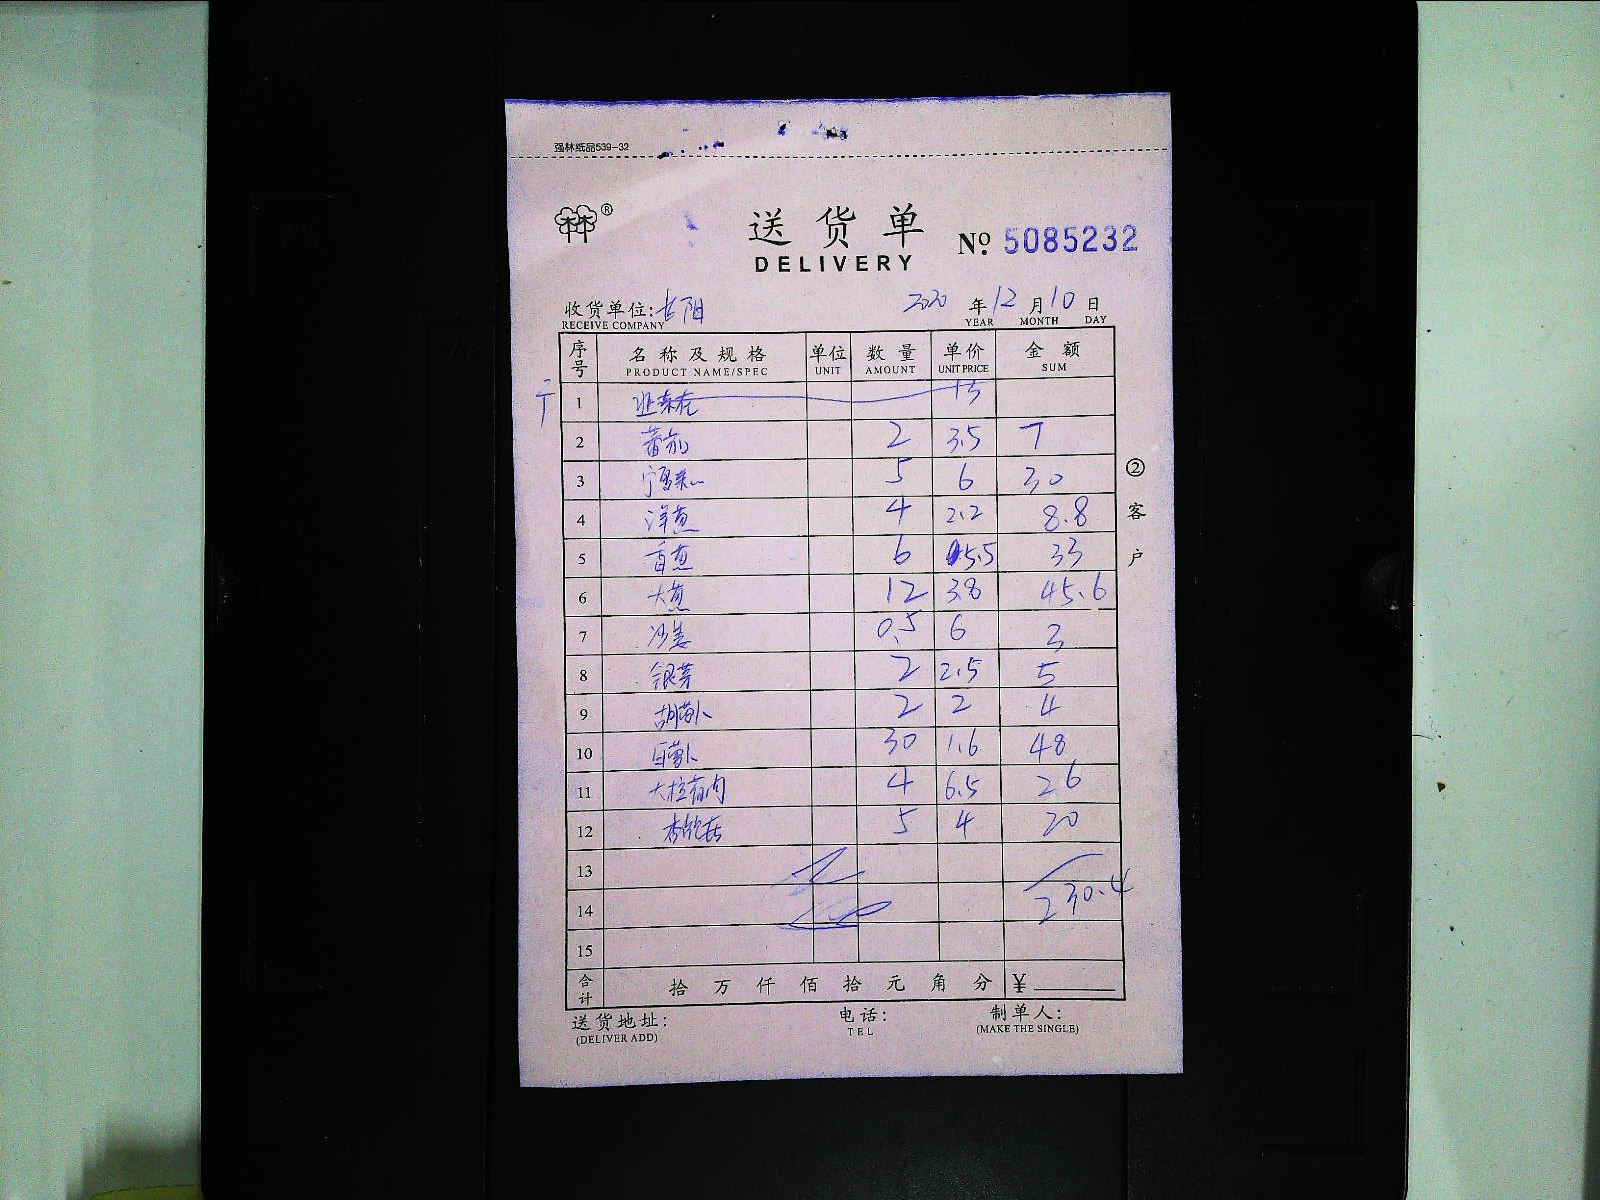 强林纸品539-32
林林®
送货单
DELIVERY
№ 5085232
收货单位: 长阳 2020 年 12 月 10 日
RECEIVE COMPANY YEAR MONTH DAY
序号 名称及规格 单位 数量 单价 金额
PRODUCT NAME/SPEC UNIT AMOUNT UNIT PRICE SUM
1 韭菜花 15
2 蕃茄 2 3.5 7
3 宁夏菜心 5 6 30
4 洋葱 4 2.2 8.8
5 香葱 6 5.5 33
6 大葱 12 3.8 45.6
7 沙姜 0.5 6 3
8 银芽 2 2.5 5
9 胡萝卜 2 2 4
10 白萝卜 30 1.6 48
11 大松肉 4 6.5 26
12 杏鲍菇 5 4 20
13
14 230.4
15
合计 拾 万 仟 佰 拾 元 角 分 ¥
② 客户
送货地址: 电话: 制单人:
(DELIVER ADD) TEL (MAKE THE SINGLE)